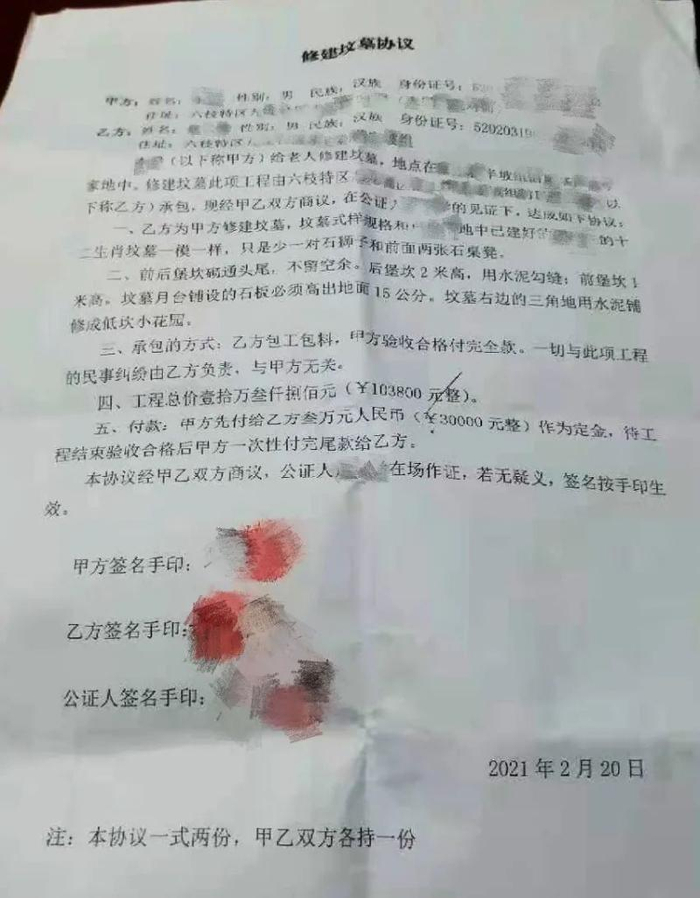 修建坟墓协议
甲方：姓名： 性别：男 民族：汉族 身份证号：520
住址：六枝特区大
乙方：姓名： 性别：男 民族：汉族 身份证号：52020319
住址：六枝特区
（以下称甲方）给老人修建坟墓，地点在
家地中。修建坟墓此项工程由六枝特区 以
下称乙方）承包，现经甲乙双方商议，在公证人 的见证下，达成如下协议：
一、乙方为甲方修建坟墓，坟墓式样规格和 地中已建好 的十
二生肖坟墓一模一样，只是少一对石狮子和前面两张石桌凳。
二、前后堡坎砌通头尾，不留空余。后堡坎2米高，用水泥勾缝；前堡坎1
米高。坟墓月台铺设的石板必须高出地面15公分。坟墓右边的三角地用水泥铺
修成低坎小花园。
三、承包的方式：乙方包工包料，甲方验收合格付完全款。一切与此项工程
的民事纠纷由乙方负责，与甲方无关。
四、工程总价壹拾万叁仟捌佰元（￥103800元整）。
五、付款：甲方先付给乙方叁万元人民币（￥30000元整）作为定金，待工
程结束验收合格后甲方一次性付完尾款给乙方。
本协议经甲乙双方商议，公证人 在场作证，若无疑义，签名按手印生
效。
甲方签名手印：
乙方签名手印：
公证人签名手印：
2021年2月20日
注：本协议一式两份，甲乙双方各持一份